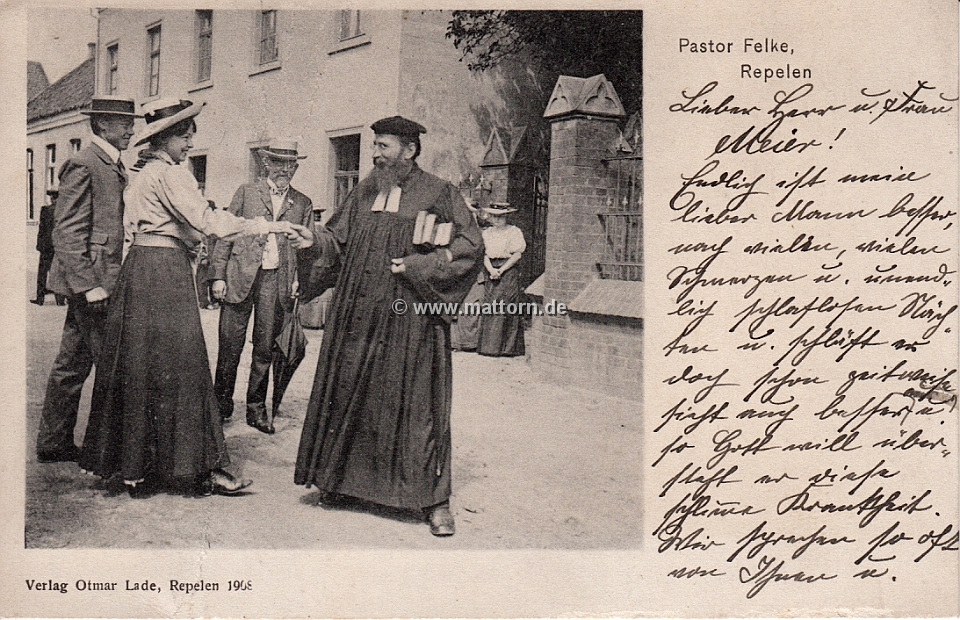 Pastor Felke,
Repelen
Lieber Herr u. Frau
Meier!
Endlich ist mein
lieber Mann besser,
nach vielen, vielen
Schmerzen u. unend-
lich schlaflosen Näch-
ten u. schläft er
doch schon zeitweise
sieht auch besser aus u.
so Gott will über-
steht er diese
schlimme Krankheit.
Wir sprechen so oft
von Ihnen u.
© www.mattorn.de
Verlag Otmar Lade, Repelen 1908